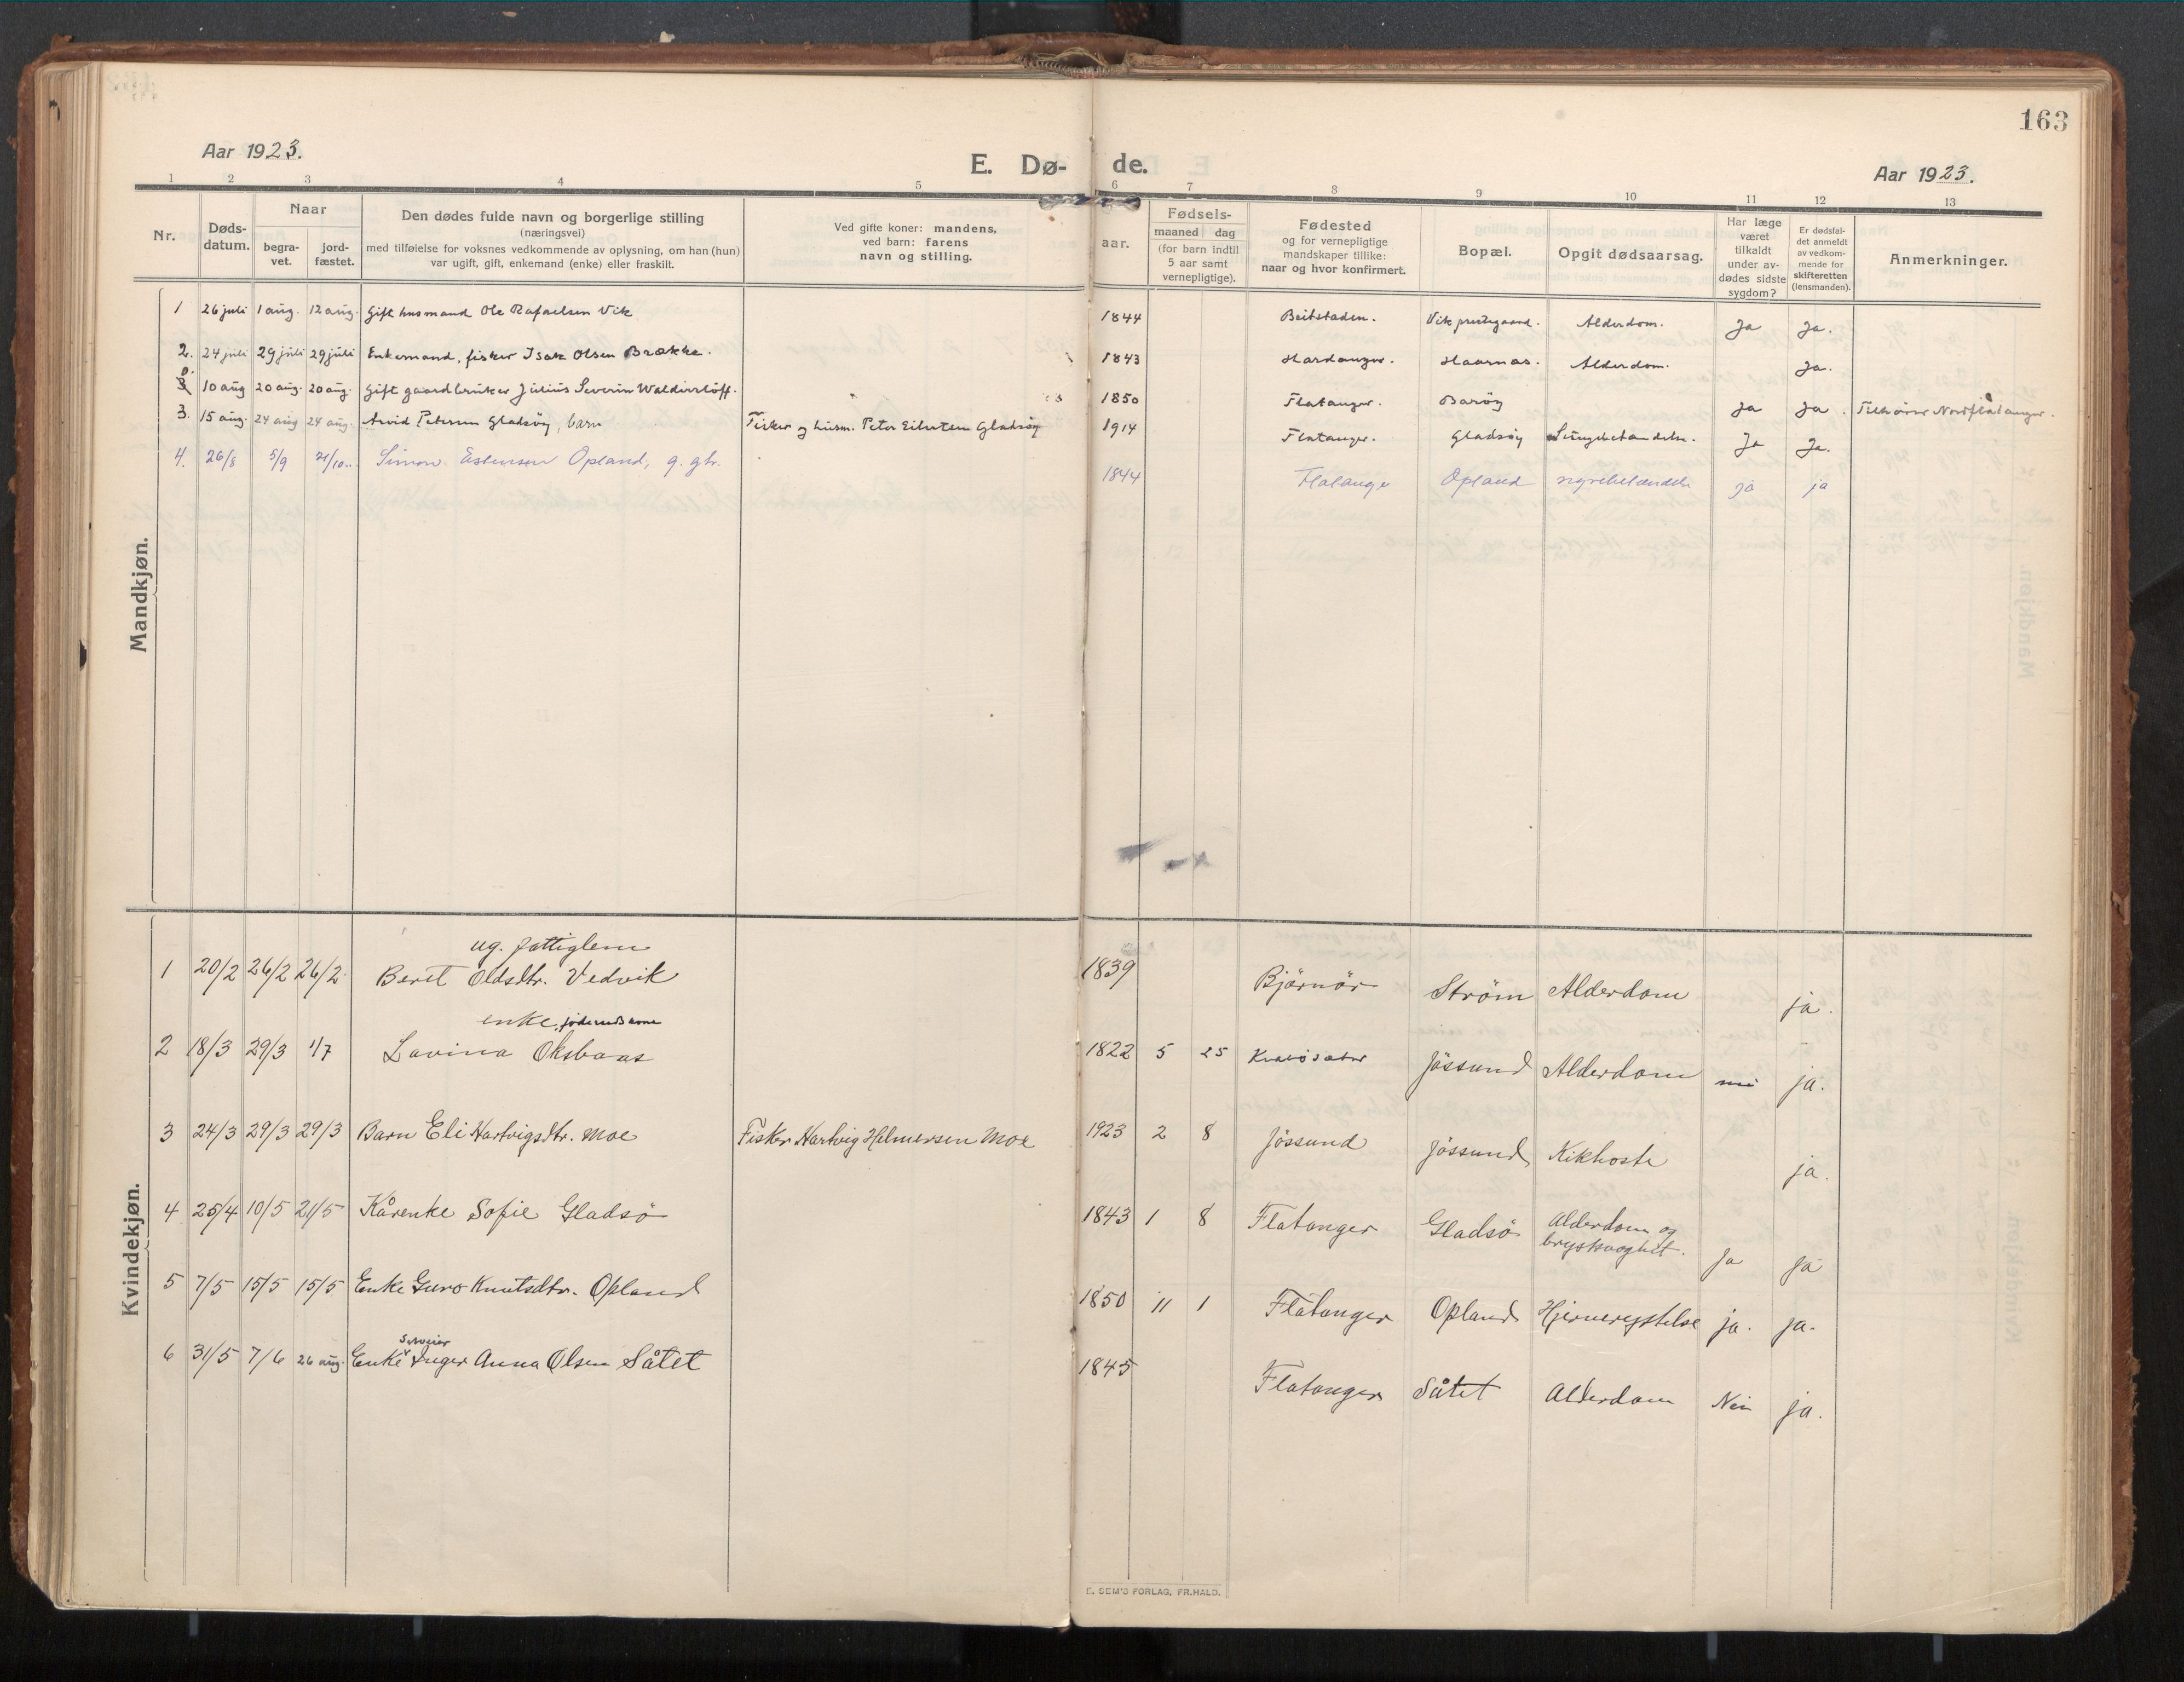 163
Aar 1923.
E. Dø- de.
Aar 1923.
1 2 3 4 5 6 7 8 9 10 11 12 13
Nr.
Døds-
datum.
Naar
begra-
vet.
jord-
fæstet.
Den dødes fulde navn og borgerlige stilling
(næringsvei)
med tilføielse for voksnes vedkommende av oplysning, om han (hun)
var ugift, gift, enkemand (enke) eller fraskilt.
Ved gifte koner: mandens,
ved barn: farens
navn og stilling.
aar.
Fødsels-
maaned dag
(for barn indtil
5 aar samt
vernepligtige).
Fødested
og for vernepligtige
mandskaper tillike:
naar og hvor konfirmert.
Bopæl.
Opgit dødsaarsag.
Har læge
været
tilkaldt
under av-
dødes sidste
sygdom?
Er dødsfal-
det anmeldt
av vedkom-
mende for
skifteretten
(lensmanden).
Anmerkninger.
Mandkjøn.
1 26 juli 1 aug. 12 aug. Gift husmand Ole Rafaelsen Vik 1844 Beitstaden. Vik prestegaard. Alderdom. Ja Ja.
2. 24 juli 29 juli 29 juli Enkemand, fisker Isak Olsen Brække. 1843 Hardanger. Haarnas. Alderdom. Ja.
0. 10 aug 20 aug. 20 aug. Gift gaardbruker Julius Severin Waldersløff. 1850 Flatanger. Barøy Ja Ja. Tilhører Nordflatanger.
3. 15 aug. 24 aug 24 aug. Arvid Petersen Gladsøy, barn Fisker og husm. Peter Eilertsen Gladsøy 1914 Flatanger. Gladsøy Lungebetændelse. Ja Ja.
4. 26/8 5/9 21/10 Simon Estensen Opland, g. gbr. 1844 Flatanger Opland nyrebetændelse ja ja
Kvindekjøn.
ug. fattiglem
1 20/2 26/2 26/2 Berit Oldsdtr. Vedvik 1839 Bjørnør Strøm Alderdom ja.
enke, føderaadskone
2 18/3 29/3 1/7 Lavina Oksbaas 1822 5 25 Jøssund Alderdom nei ja.
3 24/3 29/3 29/3 Barn Eli Hartvigsdtr. Moe Fisker Hartvig Hilmersen Moe 1923 2 8 Jøssund Jøssund Kikhoste ja.
4 25/4 10/5 21/5 Kårenke Sofie Gladsø 1843 1 8 Flatanger Gladsø Alderdom og
brystsvaghet. Ja Ja
5 7/5 15/5 15/5 Enke Guro Knutsdtr. Opland 1850 11 1 Flatanger Opland Hjernerystelse ja. ja.
Selveier
6 31/5 7/6 26 aug. Enke Inger Anna Olsen Såtet 1845 Flatanger Såtet Alderdom Nei ja.
E. SEM'S FORLAG, FR.HALD.